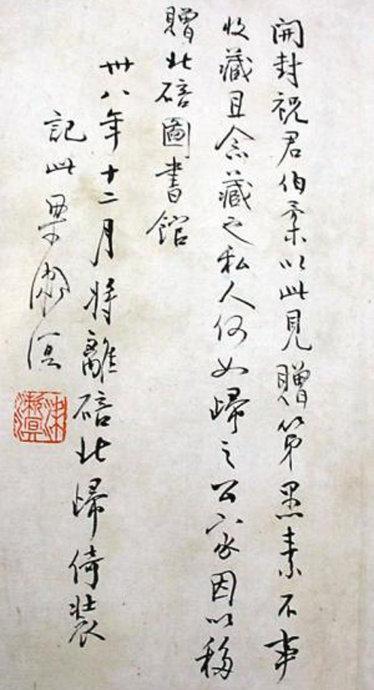 開封祝君伯柔以此見贈第愚素不事
收藏且念藏之私人何如歸之公家因以移
贈北碚圖書館
卅八年十二月將離碚北歸倚裝
記此梁漱溟
梁漱溟